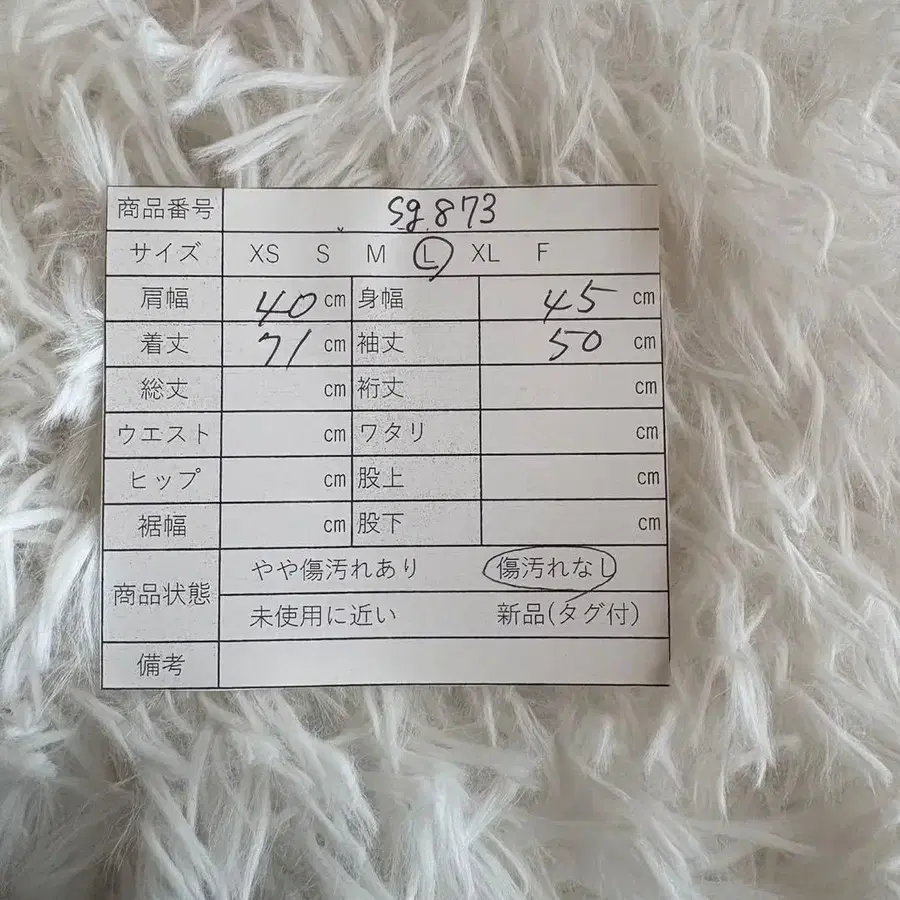 商品番号 Sg 873
サイズ XS S M L XL F
肩幅 40 cm 身幅 45 cm
着丈 71 cm 袖丈 50 cm
総丈 cm 裄丈 cm
ウエスト cm ワタリ cm
ヒップ cm 股上 cm
裾幅 cm 股下 cm
商品状態 やや傷汚れあり 傷汚れなし
未使用に近い 新品(タグ付)
備考